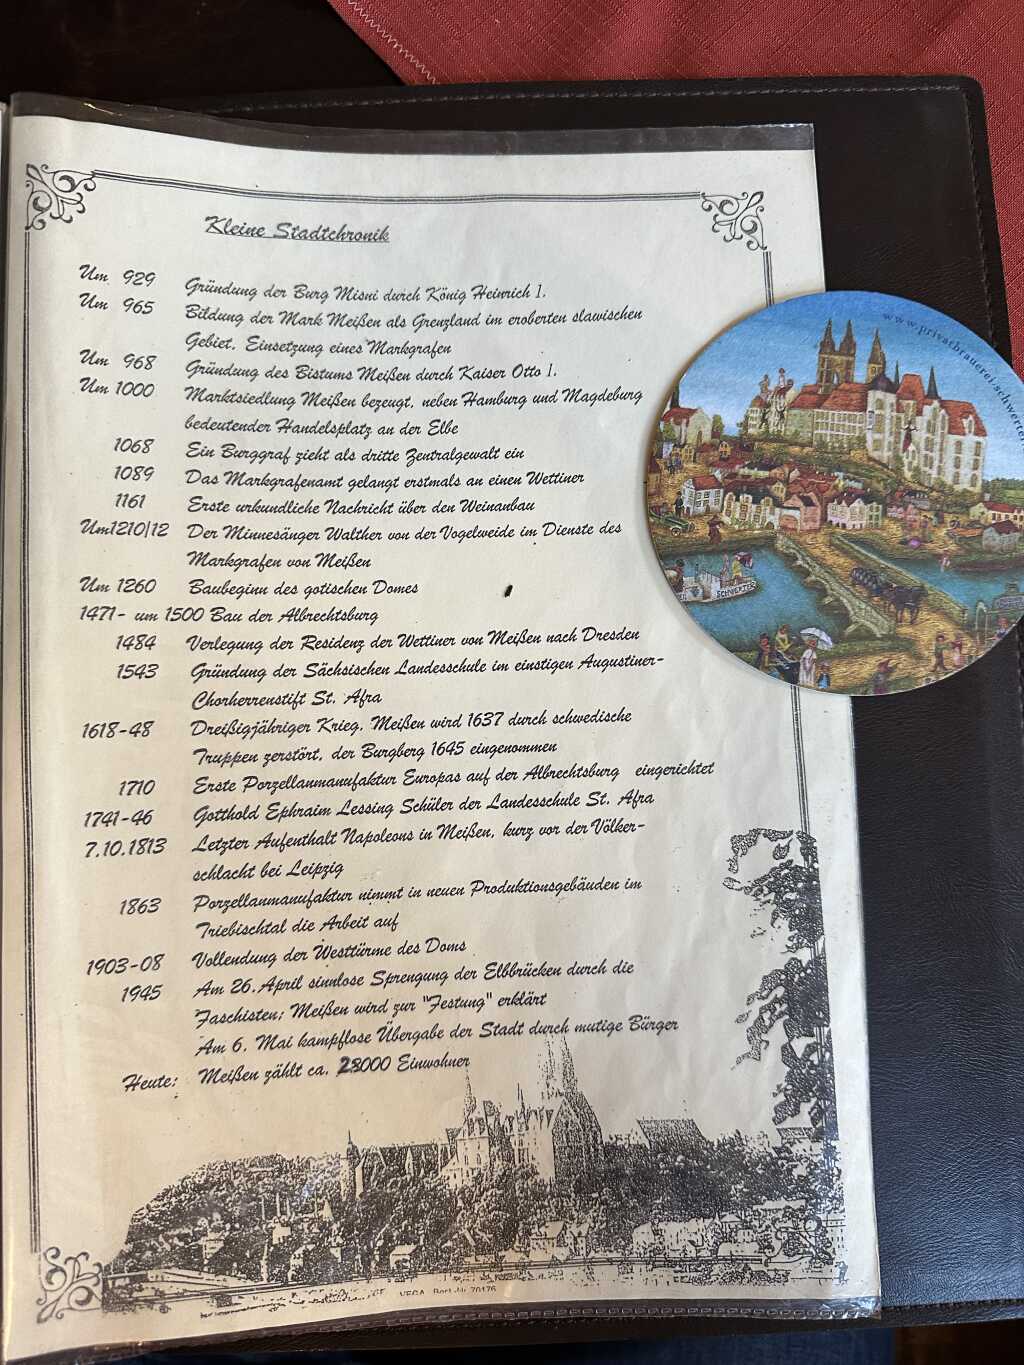 Kleine Stadtchronik
Um 929 Gründung der Burg Misni durch König Heinrich I.
Um 965 Bildung der Mark Meißen als Grenzland im eroberten slawischen
Gebiet. Einsetzung eines Markgrafen
Um 968 Gründung des Bistums Meißen durch Kaiser Otto I.
Um 1000 Marktsiedlung Meißen bezeugt, neben Hamburg und Magdeburg
bedeutender Handelsplatz an der Elbe
1068 Ein Burggraf zieht als dritte Zentralgewalt ein
1089 Das Markgrafenamt gelangt erstmals an einen Wettiner
1161 Erste urkundliche Nachricht über den Weinanbau
Um1210/12 Der Minnesänger Walther von der Vogelweide im Dienste des
Markgrafen von Meißen
Um 1260 Baubeginn des gotischen Domes
1471- um 1500 Bau der Albrechtsburg
1484 Verlegung der Residenz der Wettiner von Meißen nach Dresden
1543 Gründung der Sächsischen Landesschule im einstigen Augustiner-
Chorherrenstift St. Afra
1618-48 Dreißigjähriger Krieg, Meißen wird 1637 durch schwedische
Truppen zerstört, der Burgberg 1645 eingenommen
1710 Erste Porzellanmanufaktur Europas auf der Albrechtsburg eingerichtet
1741-46 Gotthold Ephraim Lessing Schüler der Landesschule St. Afra
7.10.1813 Letzter Aufenthalt Napoleons in Meißen, kurz vor der Völker-
schlacht bei Leipzig
1863 Porzellanmanufaktur nimmt in neuen Produktionsgebäuden im
Triebischtal die Arbeit auf
1903-08 Vollendung der Westtürme des Doms
1945 Am 26. April sinnlose Sprengung der Elbbrücken durch die
Faschisten; Meißen wird zur "Festung" erklärt
Am 6. Mai kampflose Übergabe der Stadt durch mutige Bürger
Heute: Meißen zählt ca. 28000 Einwohner
www.privatbrauerei-schwerter
SCHWERTER
VEGA Best.-Nr. 70176